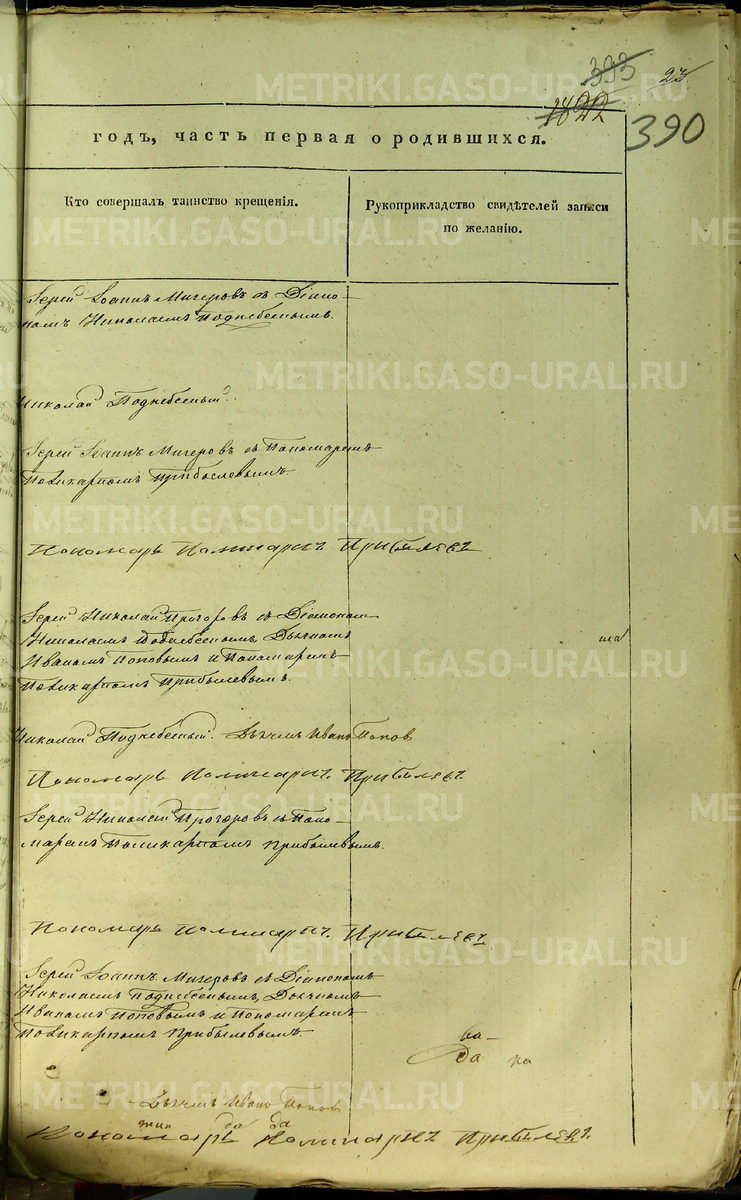 393
23
1822
390
годъ, часть первая о родившихся.
Кто совершалъ таинство крещенія.
Рукоприкладство свидѣтелей записи
по желанію.
Іерей Іоаннъ Мигеровъ съ Діако-
номъ Николаемъ Поднебеснымъ.
Николай Поднебесный.
Іерей Іоаннъ Мигеровъ съ Пономаремъ
Поликарпомъ Прибылевымъ.
Пономарь Поликарпъ Прибылевъ
Іерей Николай Прогоровъ съ Діакономъ
Николаемъ Поднебеснымъ, Дьячкомъ
Иваномъ Поповымъ и Пономаремъ
Поликарпомъ Прибылевымъ.
Николай Поднебесный. Дьячекъ Иванъ Попов
Пономарь Поликарпъ Прибылевъ
Іерей Николай Прогоровъ съ Поно-
маремъ Поликарпомъ Прибылевымъ.
Пономарь Поликарпъ Прибылевъ
Іерей Іоаннъ Мигеровъ съ Діакономъ
Николаемъ Поднебеснымъ, Дьячкомъ
Иваномъ Поповымъ и Пономаремъ
Поликарпомъ Прибылевымъ.
ка-
да на
Дьячекъ Иванъ Попов
да да
Пономарь Поликарпъ Прибылевъ.
METRIKI.GASO-URAL.RU